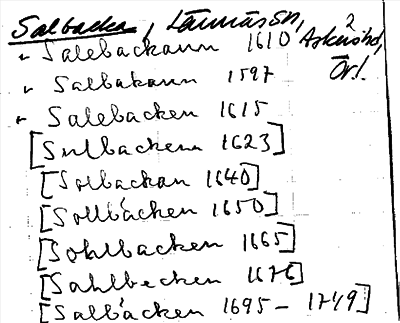 Salbacka, Lännäsön,
Salebackann 1610 Askershd, 2
" Salbakann 1597 Ör.
" Salebacken 1615
[Sulbackenn 1623]
[Solbäckan 1640]
[Sollbäcken 1650]
[Sohlbacken 1665]
[Sahlbecken 1676]
[Salbäcken 1695 - 1749]